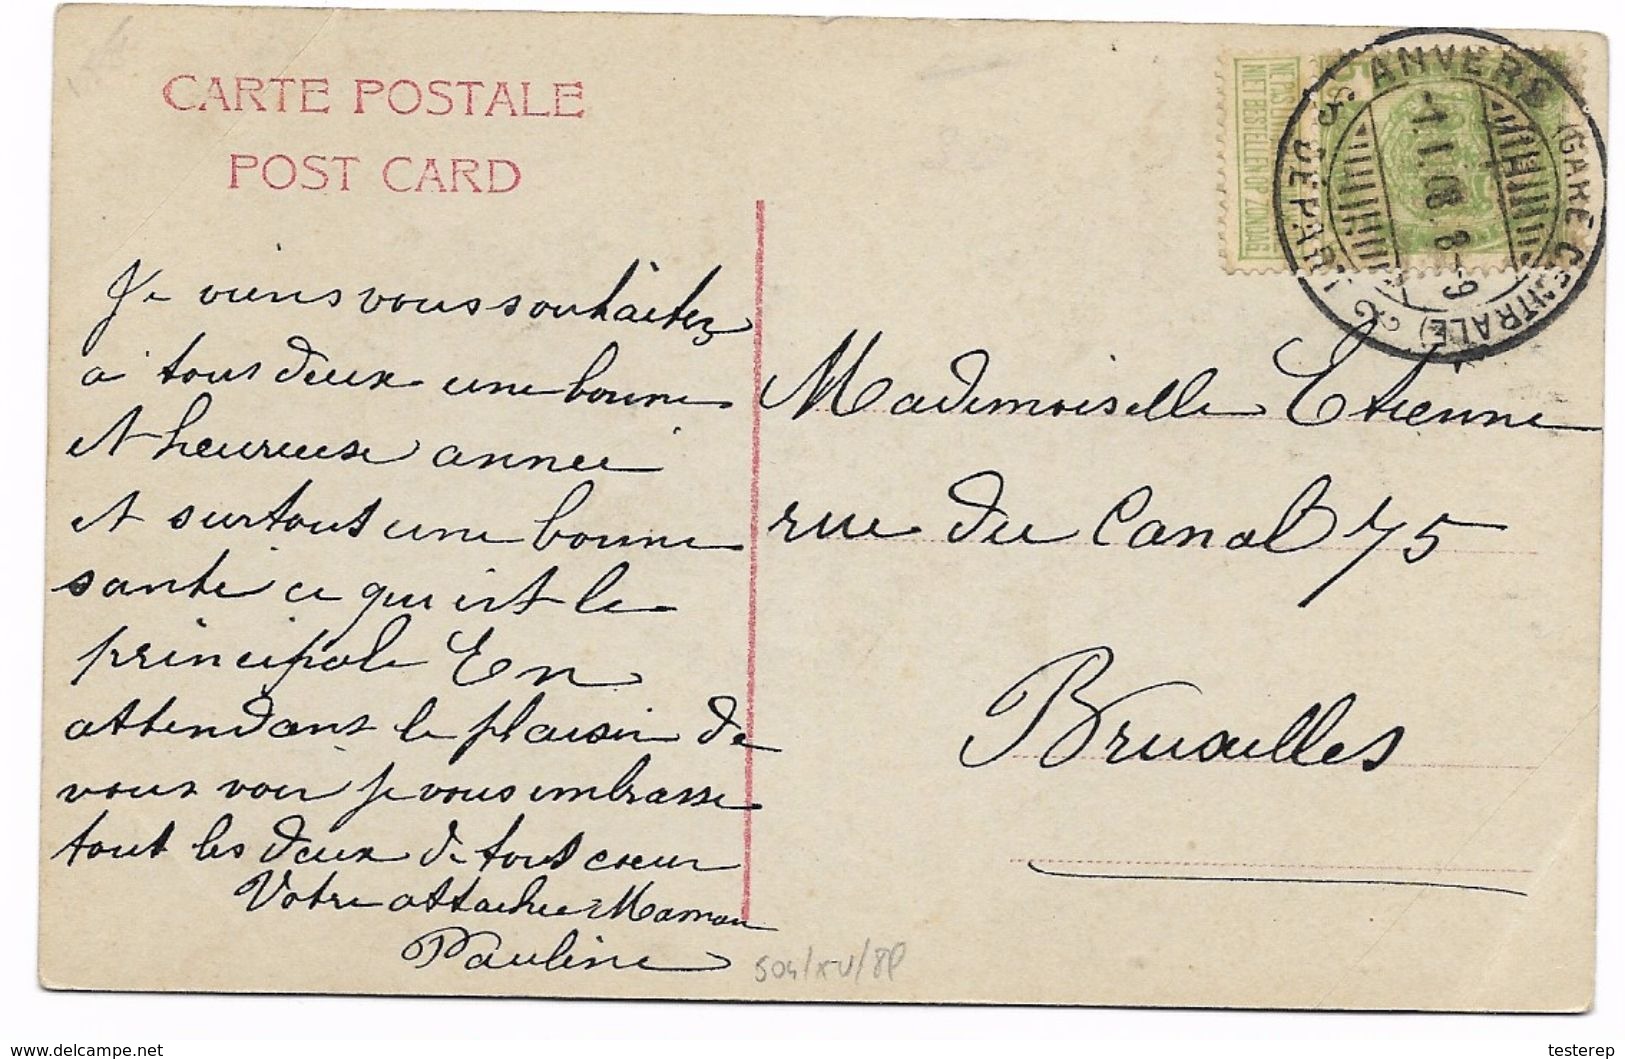 CARTE POSTALE
POST CARD
Je viens vous souhaiter
a tous deux une bonne
et heureuse année
et surtout une bonne
santé ce qui est le
principale En
attendant le plaisir de
vous voir je vous embrasse
tout les deux de tout coeur
Votre attachée Maman
Pauline
504/XV/8P
NIET BESTELLEN OP ZONDAG
ANVERS (GARE CENTRALE)
DÉPART
2
-1.I.08. 8-9
Mademoiselle Etienne
rue du Canal 75
Bruxelles
www.delcampe.net
testerep